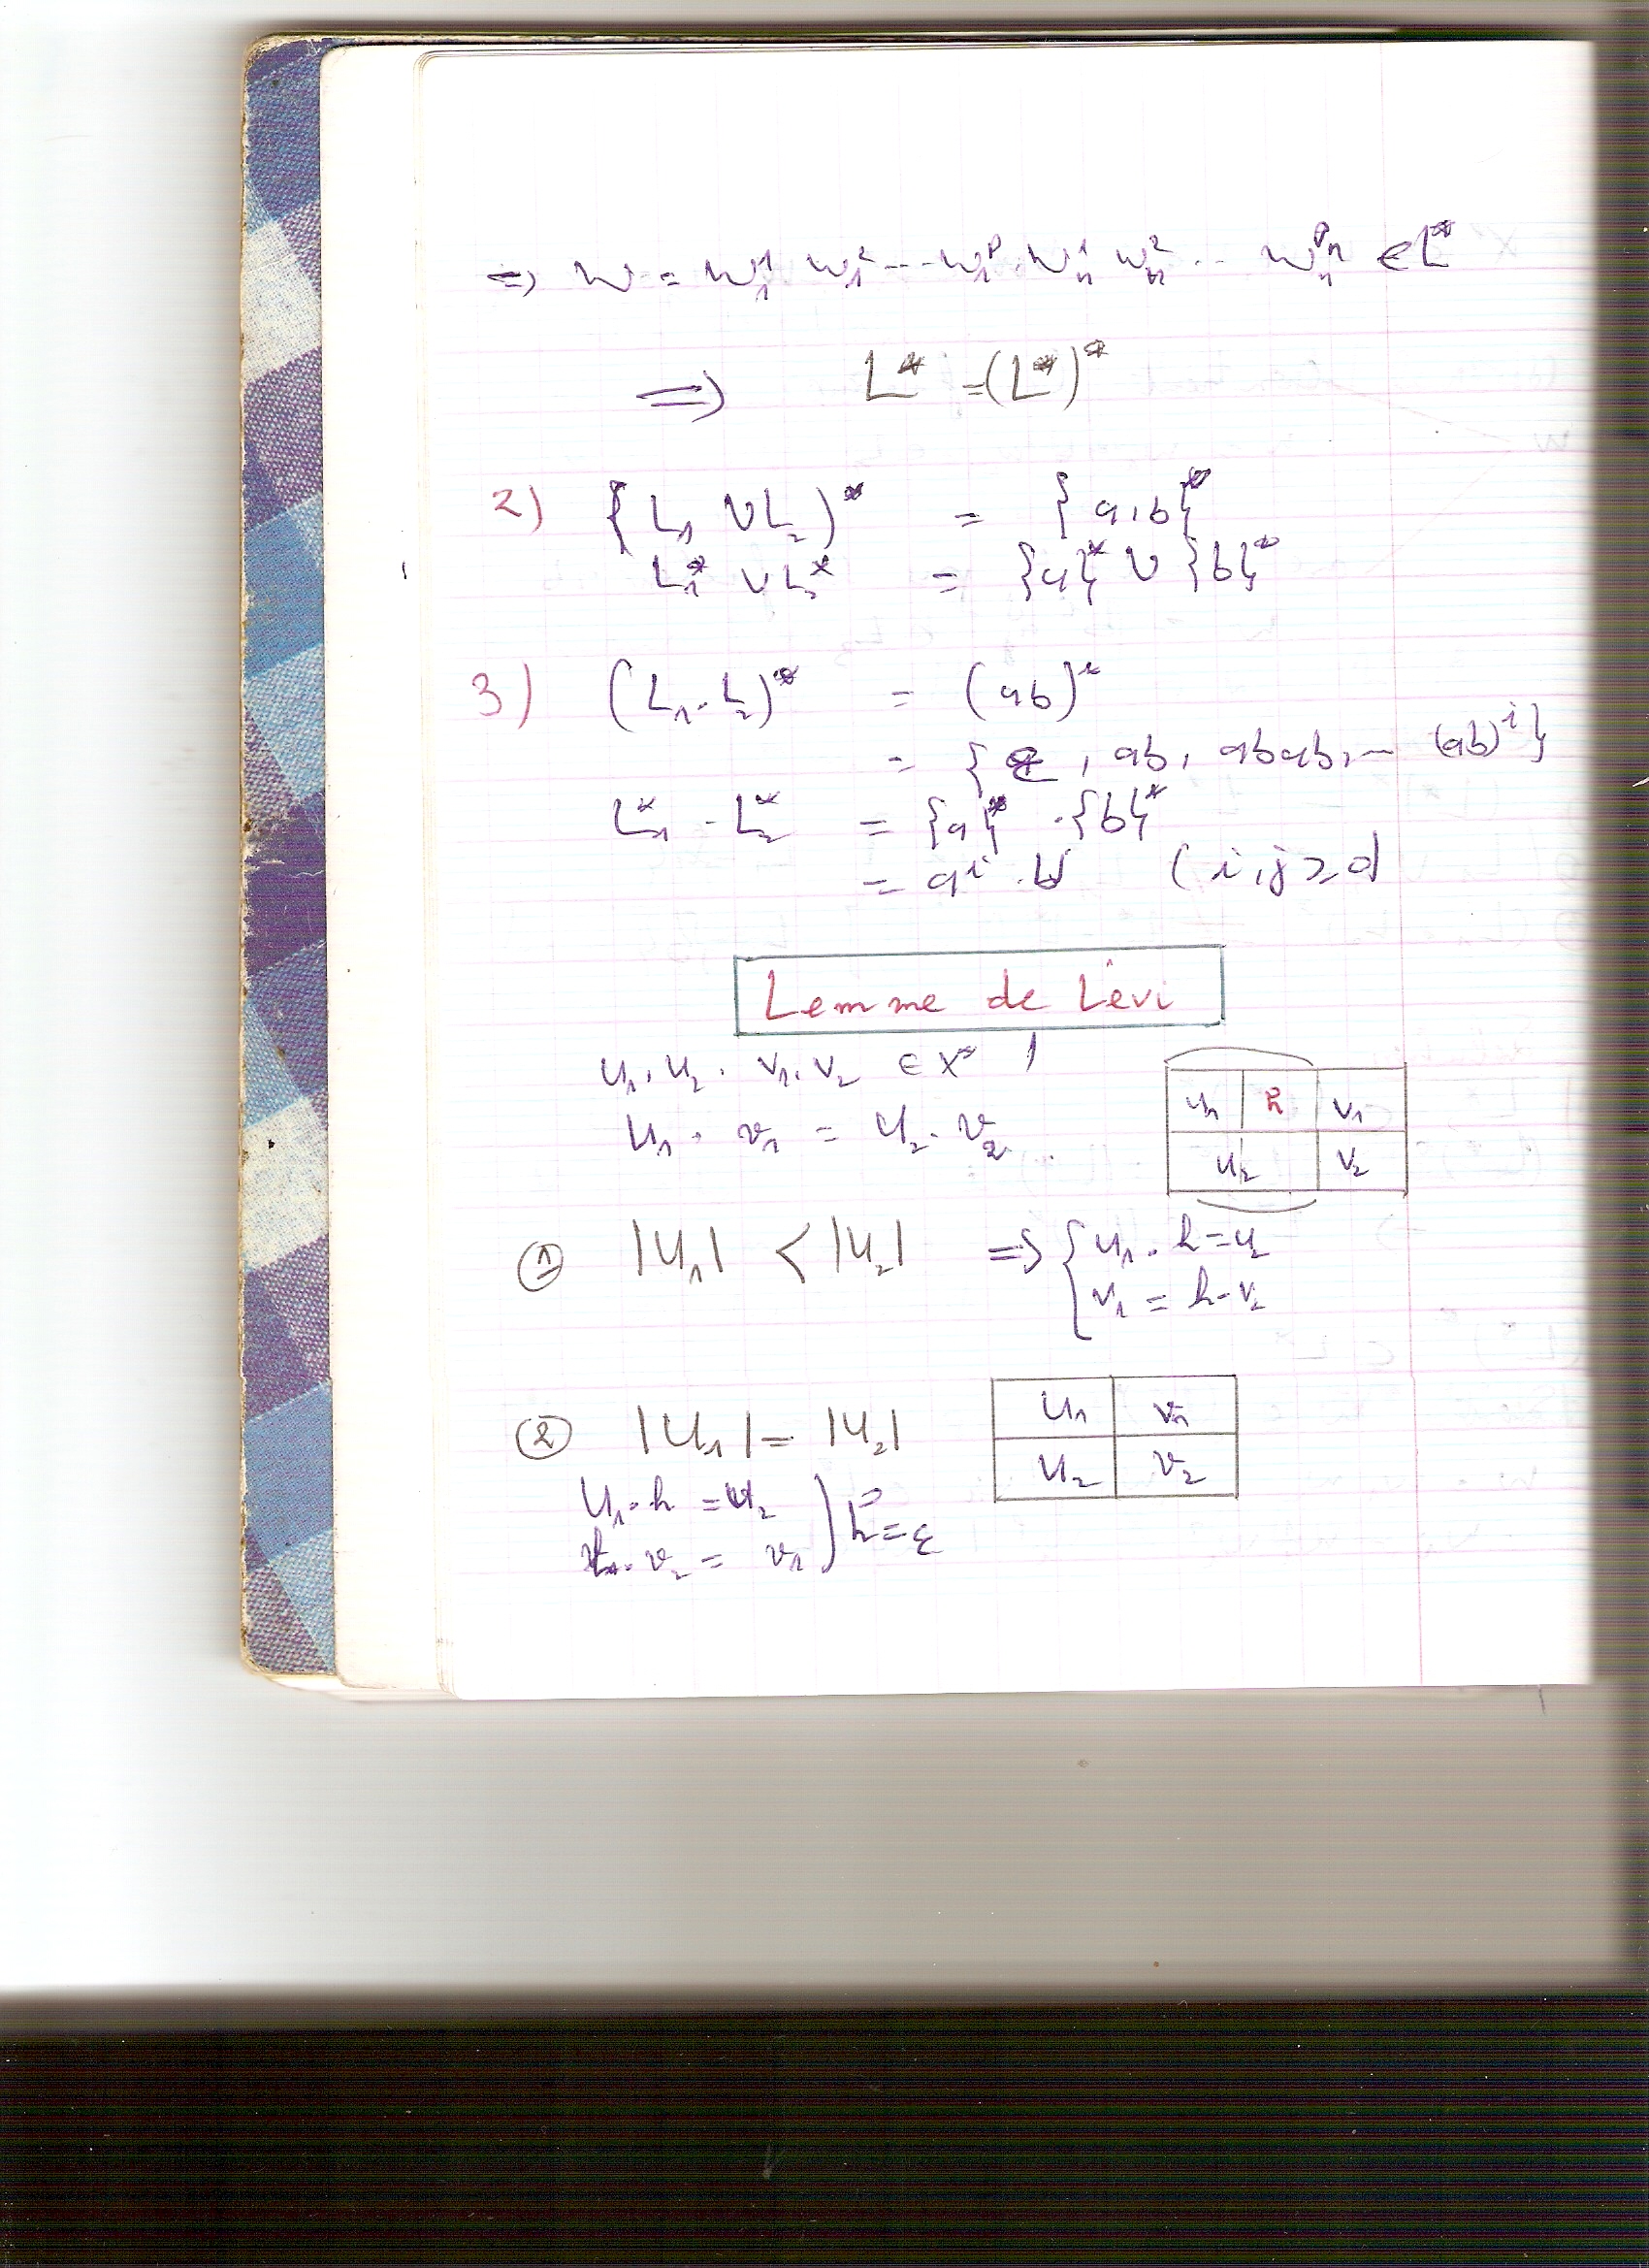 => w = w₁¹ w₁² -- w₁ᵖ . wₙ¹ wₙ² .. wₙᵖⁿ ∈ L*
=> L* = (L*)*
2) {L₁ ∪ L₂)* = {a,b}*
L₁* ∪ L₂* = {a}* ∪ {b}*
3) (L₁.L₂)* = (ab)*
= {ε, ab, abab, - (ab)ⁱ}
L₁* - L₂* = {a}* . {b}*
= aⁱ . bʲ (i,j ≥ 0)
Lemme de Lévi
u₁, u₂ . v₁, v₂ ∈ X*
u₁ . v₁ = u₂ . v₂
u₁ h v₁
u₂ v₂
① |u₁| < |u₂| => { u₁ . h = u₂
v₁ = h - v₂
② |u₁| = |u₂|
u₁ v₁
u₂ v₂
u₁ . h = u₂
h . v₂ = v₁ ) h = ε